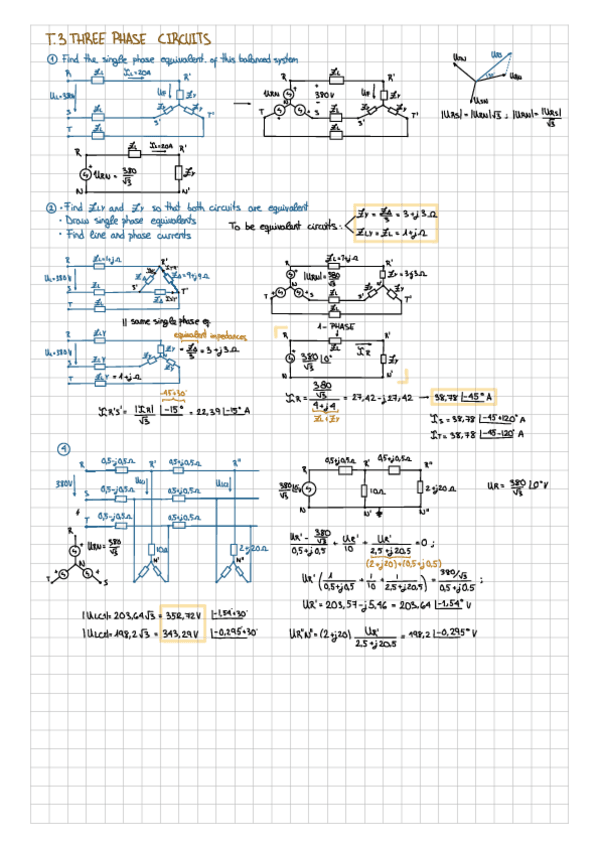 T.3 THREE PHASE CIRCUITS
① Find the single phase equivalent of this balanced system
R ZL IL=20A R'
UL=380V
S ZL
T ZL T'
ZY
S'
R ZL R'
URN 380V
ZL
T S
URS
URN
USN
|URS| = |URN|√3 ; |URN| = |URS|/√3
R ZL IL=20A R'
URN = 380/√3
ZY
N N'
② · Find ZLY and ZY so that both circuits are equivalent
· Draw single phase equivalents
· Find line and phase currents
To be equivalent circuits:
ZY = ZΔ/3 = 3+j3Ω
ZLY = ZL = 1+jΩ
R ZL=1+jΩ R'
UL=380V
S ZL S'
T ZL T'
ZΔ=9+j9Ω
R ZL=1+jΩ R'
|URN|=380/√3
ZY=3+j3Ω
T S ZL S' T'
ZL
|| same single phase eq
equivalent impedances
R ZLY R'
UL=380V
S ZLY
ZY = ZΔ/3 = 3+j3Ω
T ZLY = 1+jΩ
1-PHASE
R R'
380/√3 |0° IR ZY
N N'
-45+30°
IR'S' = |IR|/√3 |-15° = 22,39 |-15° A
IR = 380/√3 / 4+j4 = 27,42-j27,42 → 38,78 |-45° A
ZL+ZY
IS = 38,78 |-45+120° A
IT = 38,78 |-45-120° A
④
R 0,5+j0,5Ω R' 0,5+j0,5Ω R"
380V
S 0,5+j0,5Ω 0,5+j0,5Ω
T 0,5+j0,5Ω 0,5+j0,5Ω
R
URN = 380/√3
T S
10Ω
2+j20Ω
N' N"
0,5+j0,5Ω 0,5+j0,5Ω
R R' R"
380/√3 |0° V
10Ω 2+j20Ω
N N' N"
UR = 380/√3 |0° V
UR' - 380/√3 / 0,5+j0,5 + UR'/10 + UR'/2,5+j20,5 = 0 ;
(2+j20)+(0,5+j0,5)
UR' (1/0,5+j0,5 + 1/10 + 1/2,5+j20,5) = 380/√3 / 0,5+j0,5 ;
UR' = 203,57-j5,46 = 203,64 |-1,54° V
|ULC1| = 203,64√3 = 352,72V |-1,54+30°
|ULC2| = 198,2√3 = 343,29V |-0,295+30°
UR"N" = (2+j20) UR'/2,5+j20,5 = 198,2 |-0,295° V